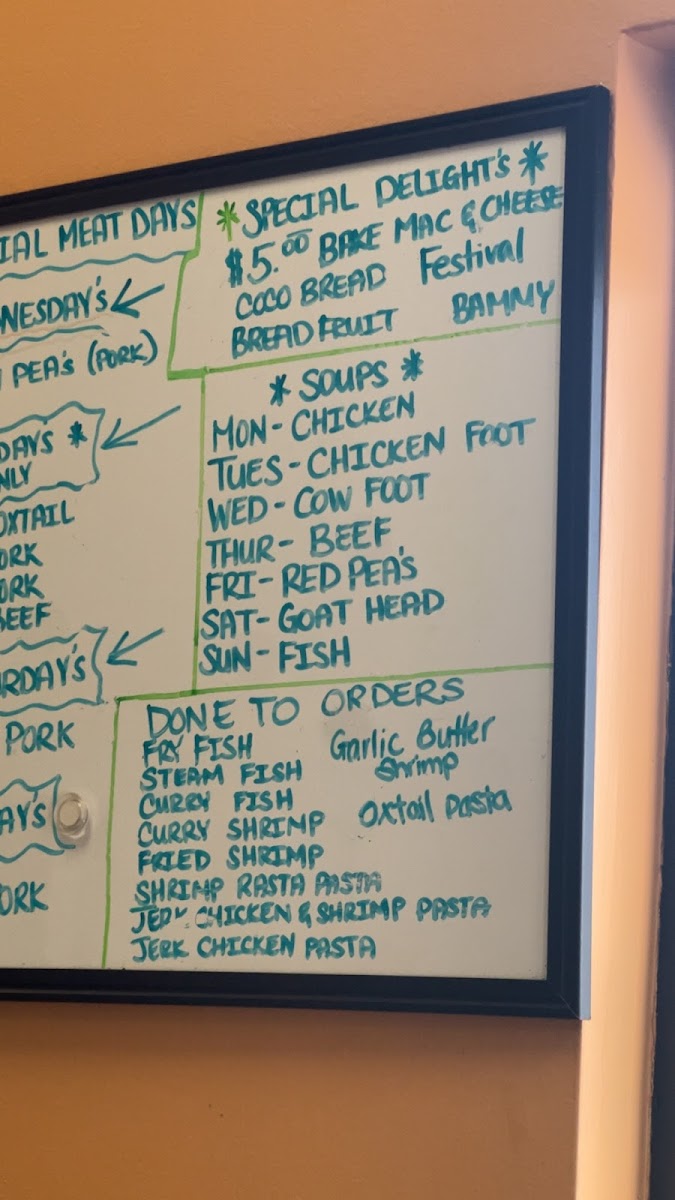 IAL MEAT DAYS
NESDAY'S
PEA'S (PORK)
DAY'S *
NLY
OXTAIL
ORK
ORK
BEEF
RDAY'S
PORK
AY'S
ORK
* SPECIAL DELIGHT'S *
$5.00 BAKE MAC & CHEESE
COCO BREAD Festival
BREADFRUIT BAMMY
* SOUPS *
MON - CHICKEN
TUES - CHICKEN FOOT
WED - COW FOOT
THUR - BEEF
FRI - RED PEA'S
SAT - GOAT HEAD
SUN - FISH
DONE TO ORDERS
FRY FISH
STEAM FISH
CURRY FISH
CURRY SHRIMP
FRIED SHRIMP
SHRIMP RASTA PASTA
JERK CHICKEN & SHRIMP PASTA
JERK CHICKEN PASTA
Garlic Butter
Shrimp
Oxtail Pasta